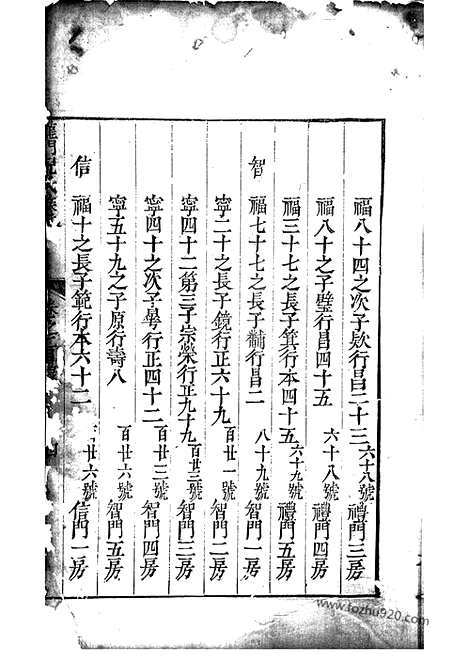 福八十四之次子欵行昌二十三 六十八號 禮門三房
福八十之子璧行昌四十五 六十八號 禮門四房
福三十七之長子箕行本四十五 六十九號 禮門五房
智 福七十七之長子黼行昌二 八十九號 智門一房
寧二十之長子鏡行正六十九 百廿一號 智門二房
寧四十二第三子宗榮行正九十九 百廿三號 智門三房
寧四十之次子暠行正四十二 百廿三號 智門四房
寧五十九之子原行壽八 百廿六號 智門五房
信 福十之長子範行本六十二 廿六號 信門一房
www.tozhu920.com